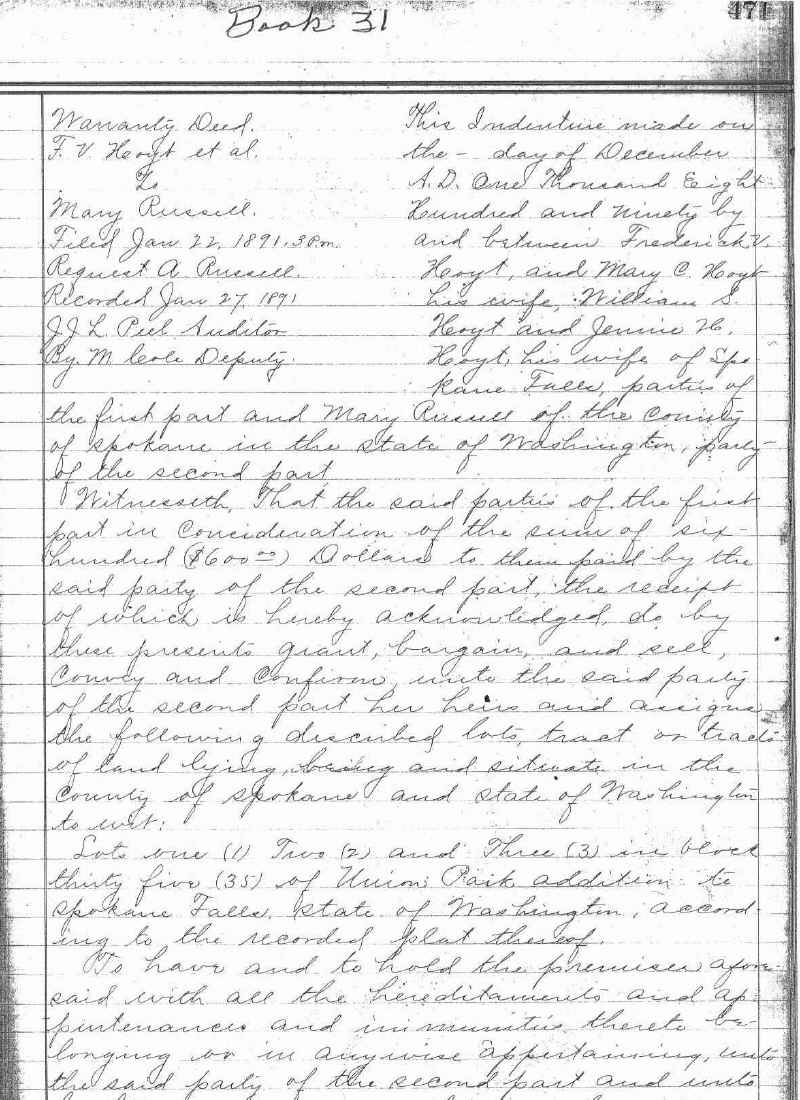 Book 31
471
Warranty Deed.
F. V. Hoyt et al.
To
Mary Russell.
Filed Jan 22, 1891. 3 P.m.
Request A. Russell.
Recorded Jan 27, 1891
J J L Peel Auditor
By. M Cole Deputy.
This Indenture made on
the - day of December
A.D. One Thousand Eight
Hundred and Ninety by
and between Frederick V.
Hoyt, and Mary C. Hoyt
his wife, William S.
Hoyt and Jennie H.
Hoyt, his wife of Spo-
kane Falls, parties of
the first part and Mary Russell of the County
of Spokane in the State of Washington, party
of the second part
Witnesseth, That the said parties of the first
part in consideration of the sum of six-
hundred ($600 00) Dollars to them paid by the
said party of the second part, the receipt
of which is hereby acknowledged, do by
these presents grant, bargain, and sell,
Convey and Confirm, unto the said party
of the second part her heirs and assigns
the following described lots, tract or tracts
of land lying, being and situate in the
County of Spokane and State of Washington
to wit:
Lots one (1) Two (2) and Three (3) in block
thirty five (35) of Union Park addition to
Spokane Falls, State of Washington, accord-
ing to the recorded plat thereof.
To have and to hold the premises afore-
said with all the hereditaments and ap-
purtenances and immunities thereto be-
longing or in anywise appertaining, unto
the said party of the second part and unto